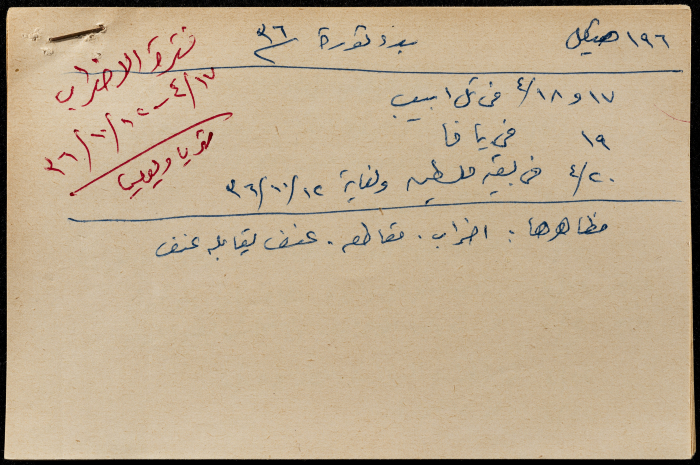 ١٩٦ هيكل بدء ثورة ٣٦
١٧ و ٤/١٨ في تل ابيب
١٩ في يافا
٤/٢٠ في بقية فلسطين ولغاية ٣٦/١٠/١٢
مظاهرها: اضراب. مقاطعه. عنف يقابله عنف
فترة الاضراب
٤/١٧ - ٣٦/١٠/١٢